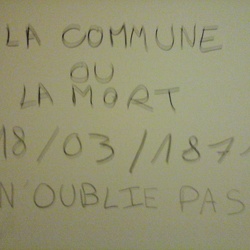 LA COMMUNE
OU
LA MORT
18/03/1871
N'OUBLIE PAS